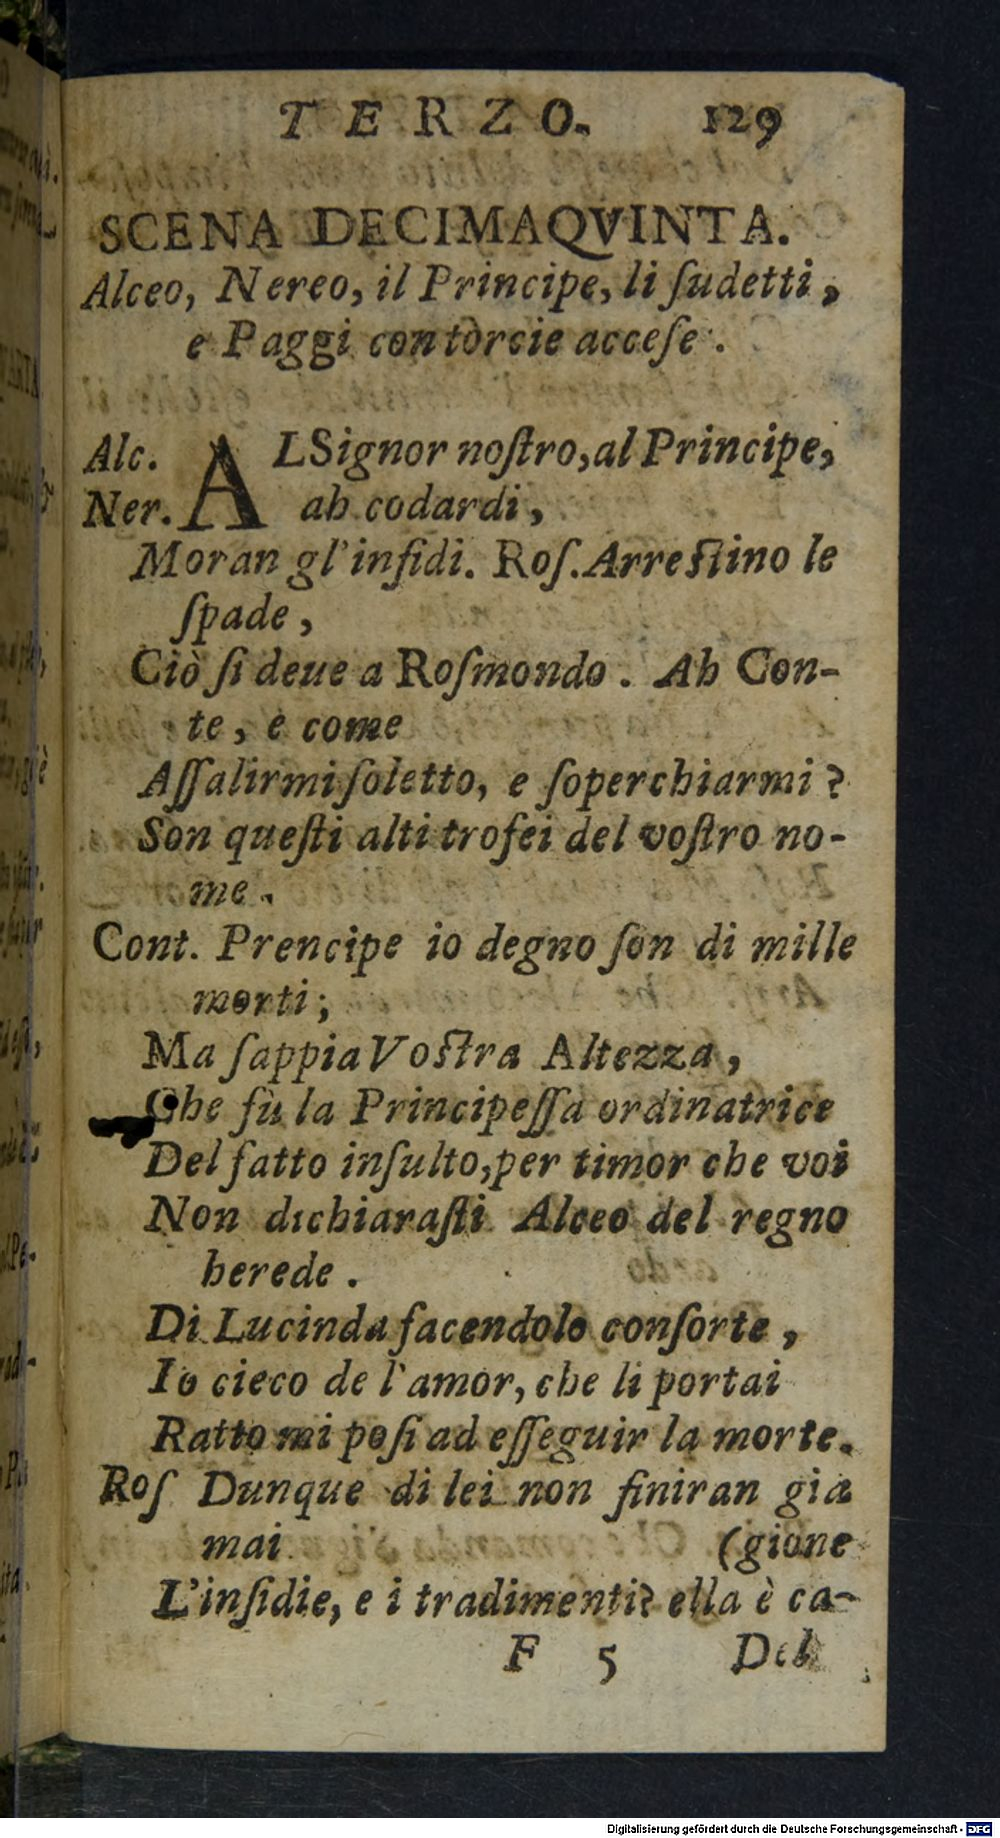 TERZO. 129
SCENA DECIMAQVINTA.
Alceo, Nereo, il Principe, li ſudetti,
e Paggi con torcie acceſe.
Alc. ALSignor noſtro, al Principe,
Ner. ah codardi,
Moran gl'infidi. Roſ. Arreſtino le
ſpade,
Ciò ſi deue a Roſmondo. Ah Con-
te, e come
Aſſalirmi ſoletto, e ſoperchiarmi?
Son queſti alti trofei del voſtro no-
me.
Cont. Prencipe io degno ſon di mille
morti;
Ma ſappia Voſtra Altezza,
Che fù la Principeſſa ordinatrice
Del fatto inſulto, per timor che voi
Non dichiaraſti Alceo del regno
herede.
Di Lucinda facendolo conſorte,
Io cieco de l'amor, che li portai
Ratto mi poſi ad eſſeguir la morte.
Roſ Dunque di lei non finiran gia
mai (gione
L'inſidie, e i tradimenti? ella è ca-
F 5 Del
Digitalisierung gefördert durch die Deutsche Forschungsgemeinschaft - DFG